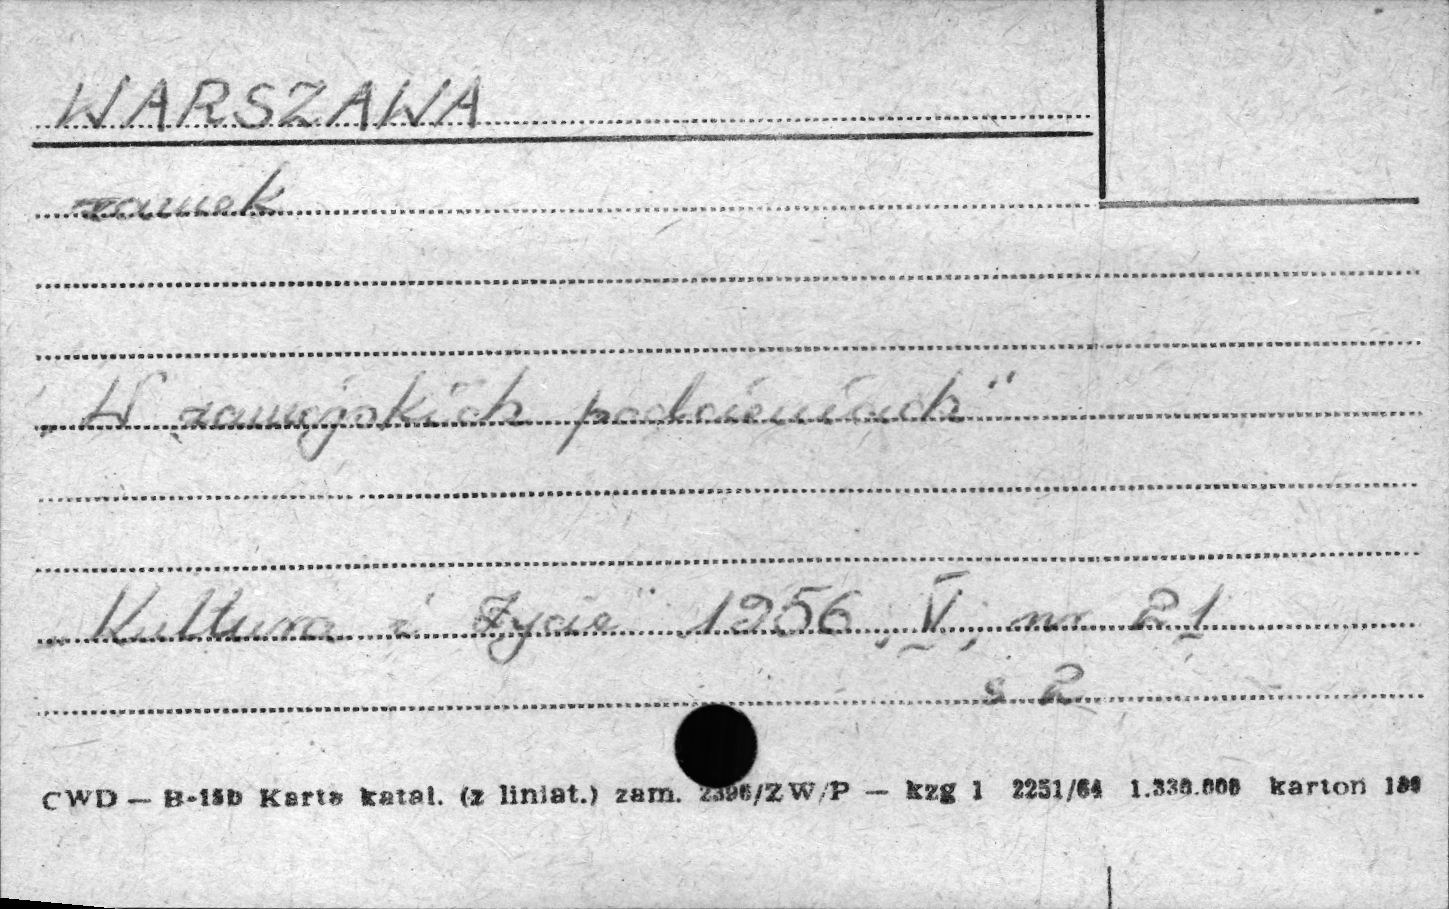 WARSZAWA
zamek
„W zamojskich podcieniach"
„Kultura i Życie" 1956, V, nr 21
s 2
CWD — B-15b Karta katal. (z liniat.) zam. 2396/ZW/P — kzg 1 2251/64 1.330.000 karton